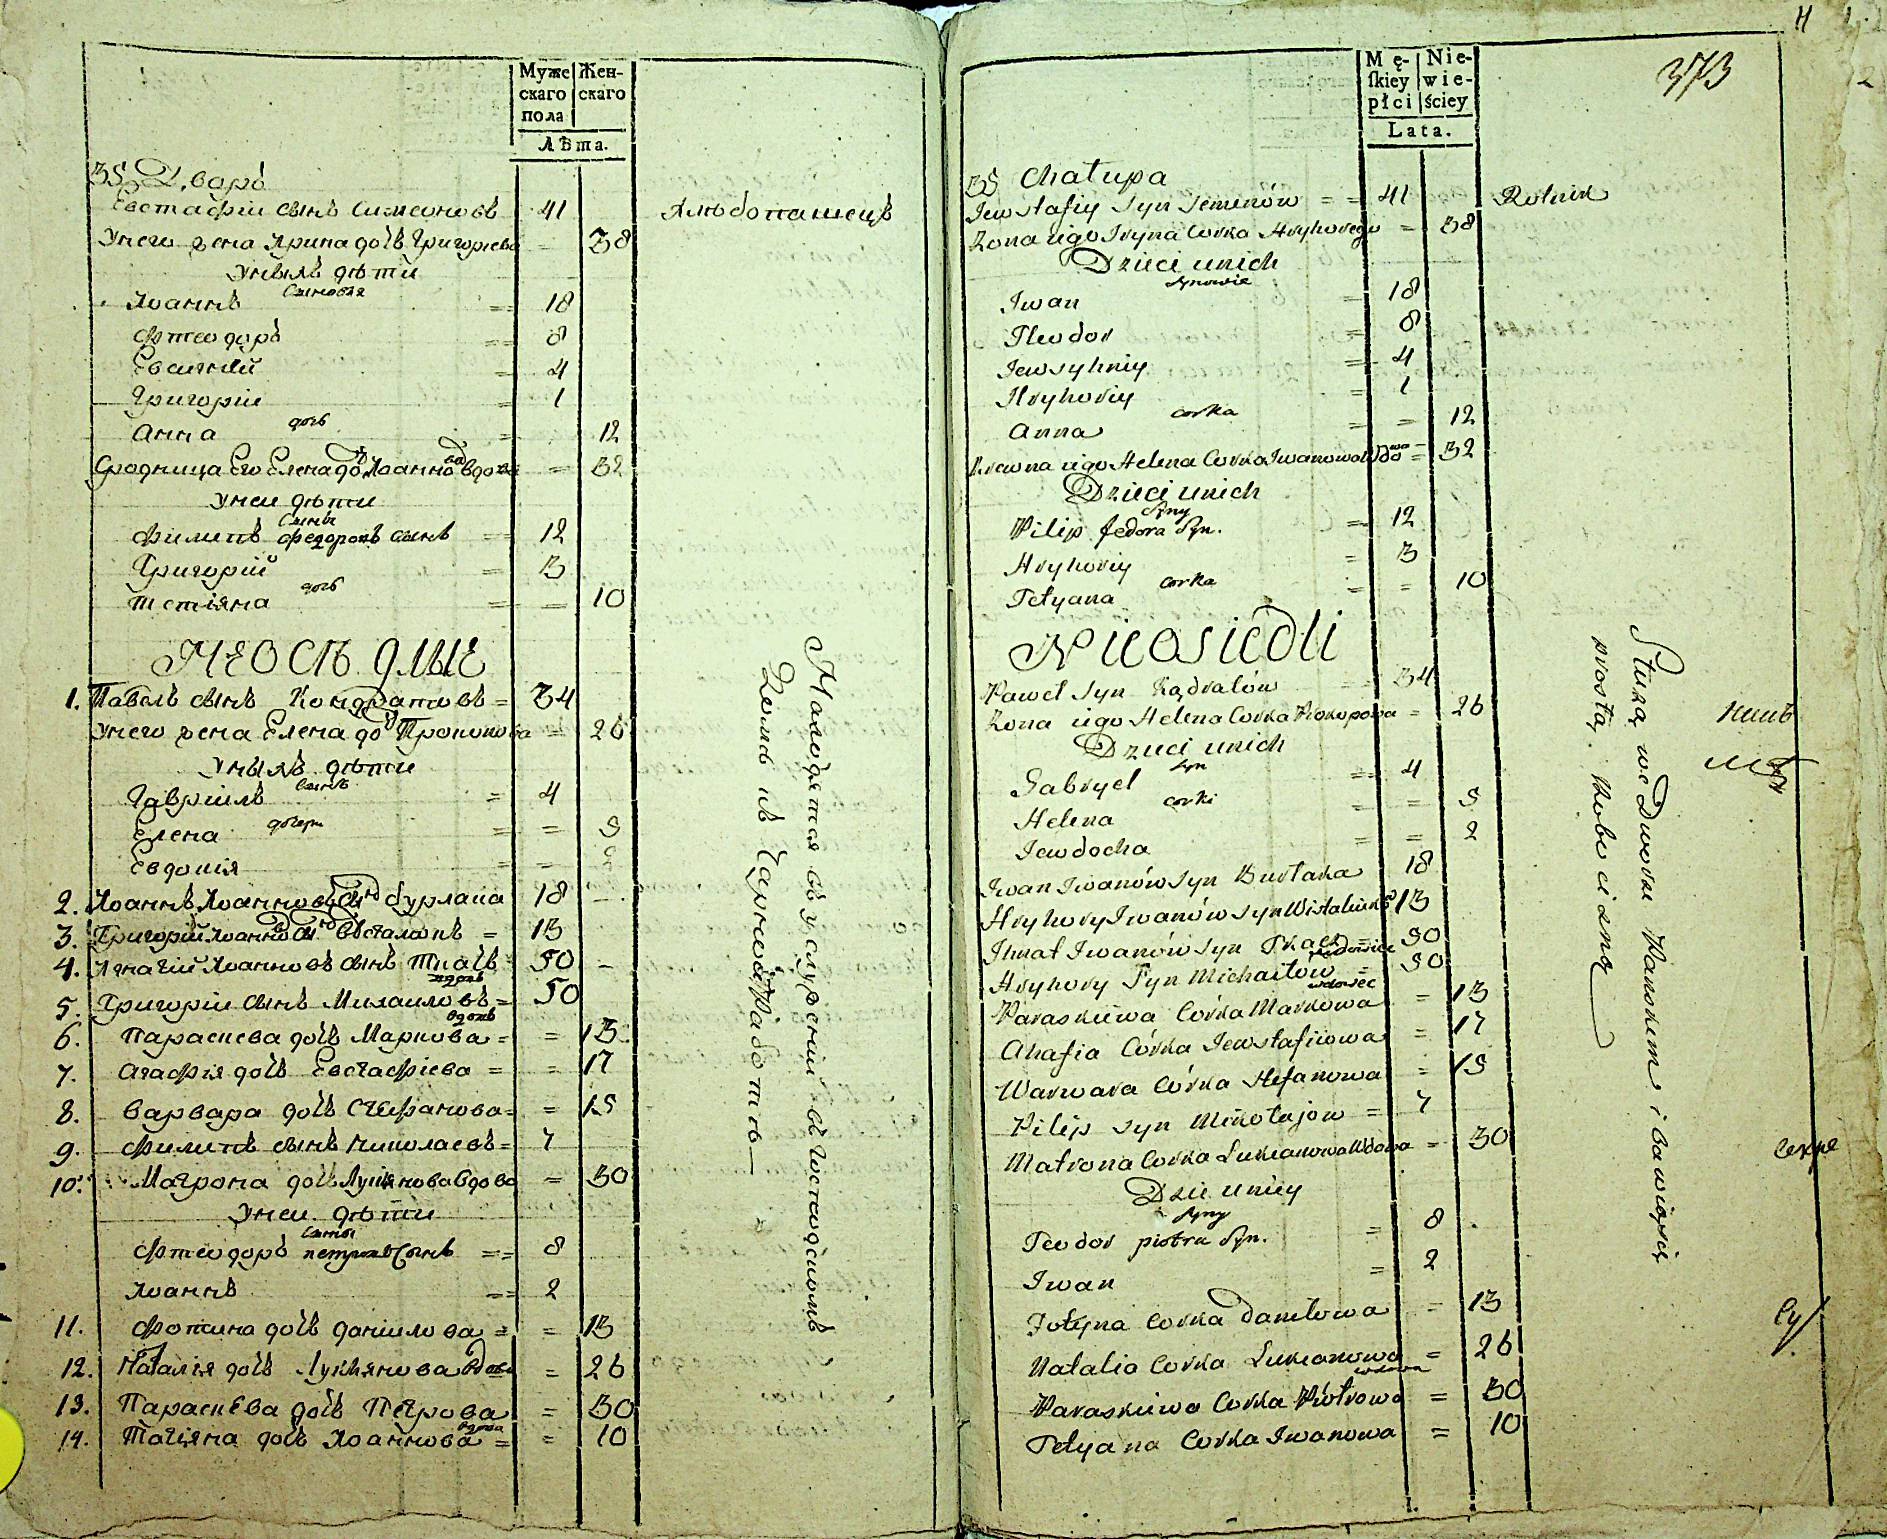 Муже
скаго
пола
Жен-
скаго
Лѣта.
35 Дворъ
Евстафій сынъ Симеоновъ 41 Хлѣбопашецъ
Унего жена Ирина дочь Григориева = 38
Унихъ дѣти
Сыновья
Иоаннъ = 18
Фтеодоръ = 8
Евсигній = 4
Григорій = 1
дочь
Анна = 12
Сродница Его Елена дочь Иоаннова вдова = 32
Унеи дѣти
Сыны
Филипъ Федоровъ сынъ = 12
Григорій = 3
дочь
Тетіяна = = 10
Неосѣдлые
1. Павелъ сынъ Кондратовъ = 34
Унего жена Елена дочь Прокопова = 26
Унихъ дѣти
сынъ
Гавріилъ = 4
дочери
Елена = = 5
Евдокія = = 2
2. Иоаннъ Иоанновъ сынъ Бурлака 18
3. Григорій Иоанновъ сынъ = 13
4. Игнатій Иоанновъ сынъ Ткачъ 50
вдовъ
5. Григорій сынъ Михаиловъ = 50
вдовъ
6. Параскева дочь Маркова = = 13
7. Агафія дочь Евстафіева = = 17
8. Варвара дочь Стефанова = = 15
9. Филипъ сынъ Николаевъ = 7
10. Матрона дочь Лукянова вдова = 30
Унеи дѣти
Сыны
Фтеодоръ петровъ Сынъ = 8
Иоаннъ = 2
11. Фотина дочь Даніилова = = 13
12. Наталія дочь Лукянова вдова = 26
13. Параскева дочь Петрова = 30
вдова
14. Татіяна дочь Иоаннова = = 10
Находятся въ услуженіи въ Господскомъ
Домѣ и въ Чорной Работѣ
Mę-
skiey
płci
Nie-
wie-
ściey
Lata.
373
35 Chałupa
Jewstafiy Syn Semenów = = 41 Rolnik
Zona iego Iryna Corka Hryhorego = 38
Dzieci unich
synowie
Iwan = 18
Theodor = 8
Jewsyhniy = 4
Hryhoriy = 1
corka
Anna = = 12
Krewna iego Helena Corka Iwanowa Wdowa = 32
Dzieci unich
Syny
Pilip fedora Syn. = 12
Hryhoriy = 3
corka
Tetyana = = 10
Nieosiedli
Paweł Syn Kądratów 34
Zona iego Helena Corka Prokopowa = 26
Dzieci unich
syn
Gabryel = 4
corki
Helena = = 5
Jewdocha = = 2
Iwan Iwanów Syn Burłaka 18
Hryhory Iwanów syn 13
Ihnat Iwanów Syn Tkacz = 50
wdowiec
Hryhory Syn Michaiłów = 50
wdowiec
Paraskiewa Córka Markowa = 13
Ahafia Córka Jewstafiiowa = 17
Warwara Córka Stefanowa = 15
Pilip syn Mikołajow = 7
Matrona Corka Łukianowa Wdowa = 30
Dzie uniey
Syny
Teodor piotra Syn. = 8
Iwan = 2
Fotyna Corka Daniłowa = 13
Natalia Corka Łukianowa = 26
wdowa
Paraskiewa Corka Piotrowa = 30
Tetyana Corka Iwanowa = 10
Służą we Dworze Pańskiem i bawiąsię
prostą Robocizną